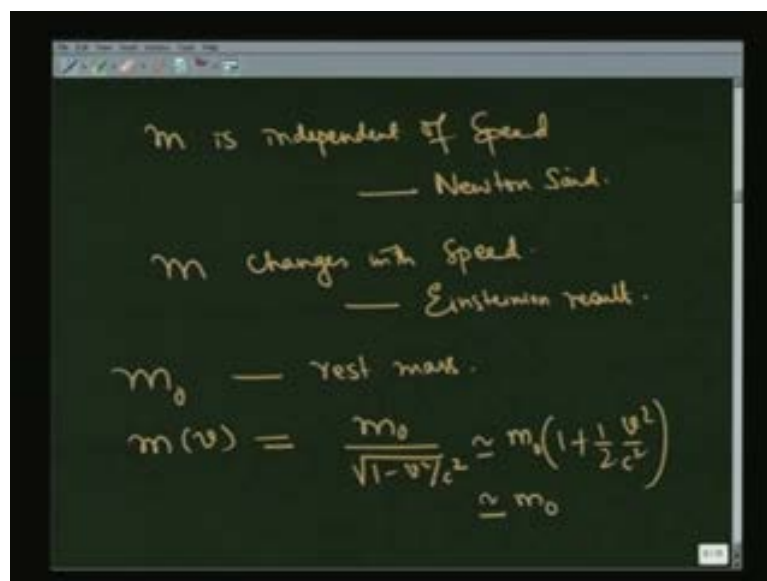 m is independent of Speed
— Newton Said.
m changes with Speed.
— Einsteinian result.
m₀ — rest mass.
m(v) = m₀/√(1-v²/c²) ≃ m₀(1+½ v²/c²)
≃ m₀